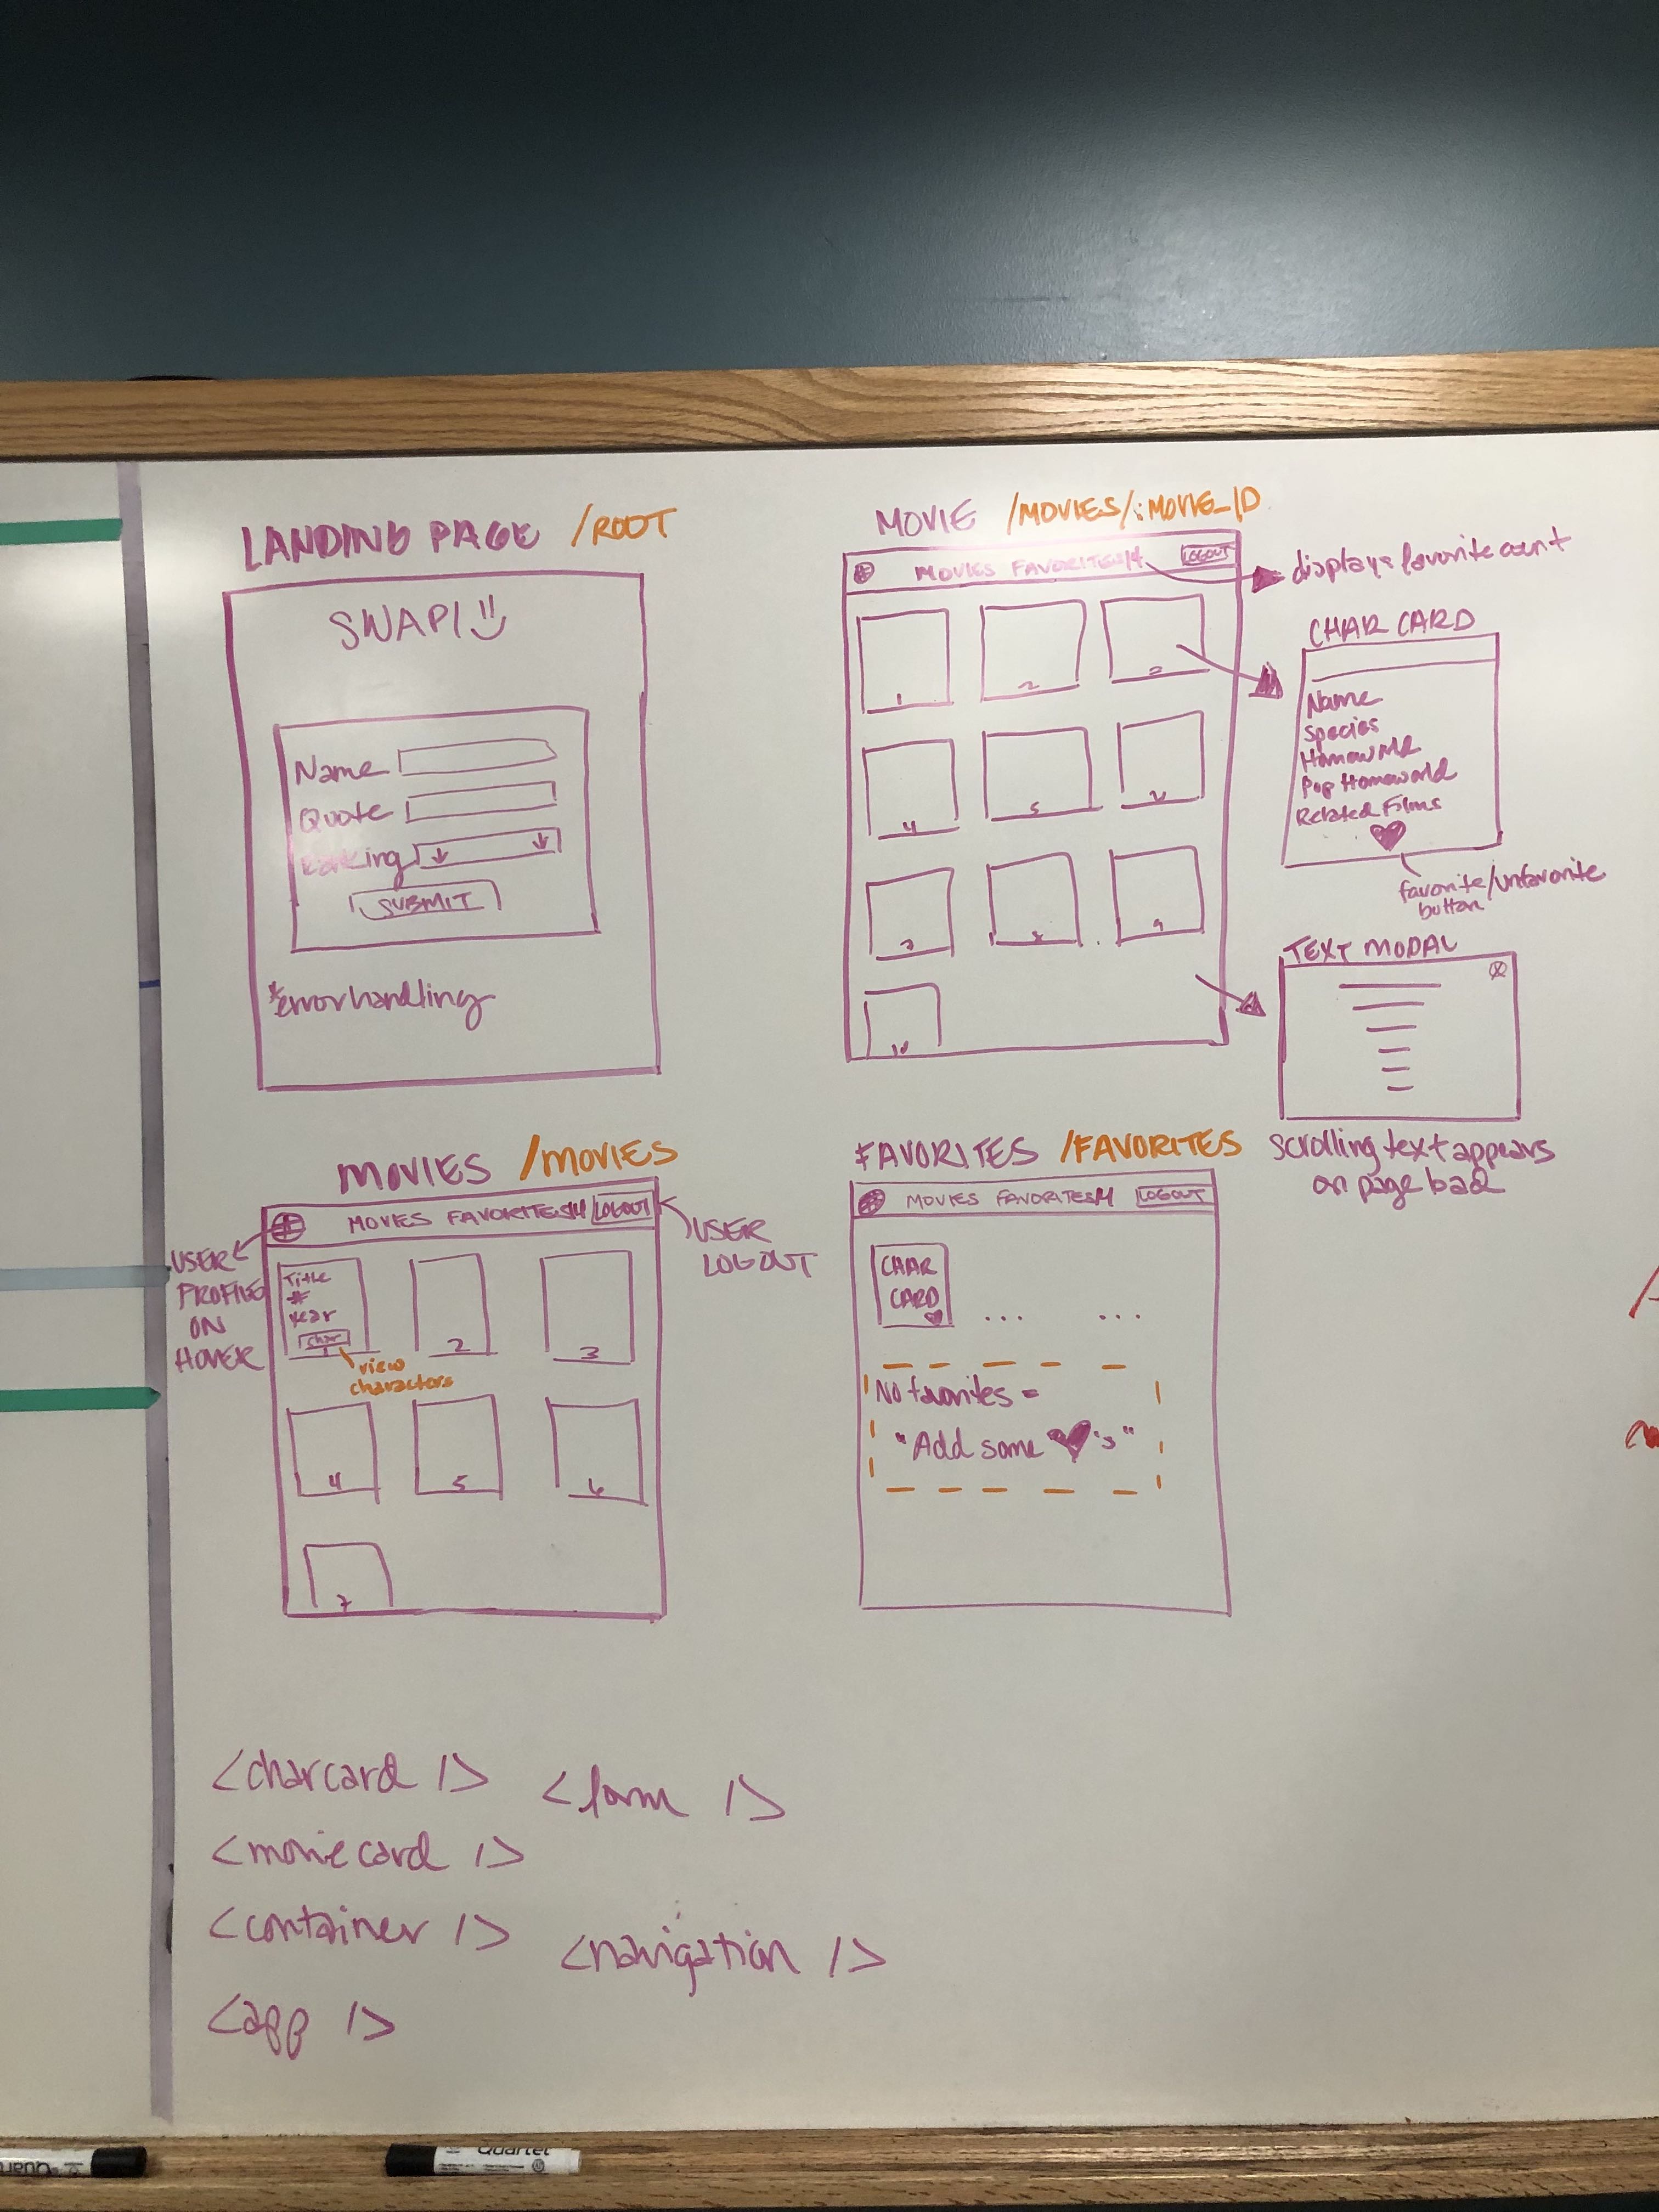 LANDING PAGE /ROOT
SWAPI
Name
Quote
Ranking
SUBMIT
*error handling
MOVIE /MOVIES/:MOVIE_ID
MOVIES FAVORITES 14 LOGOUT
displays favorite count
1
2
4
5
7
8
9
10
CHAR CARD
Name
Species
Homeworld
Pop Homeworld
Related Films
favorite/unfavorite
button
TEXT MODAL
X
scrolling text appears
on page load
MOVIES /MOVIES
MOVIES FAVORITES 14 LOGOUT
USER
PROFILE
ON
HOVER
USER
LOGOUT
Title
#
Year
char
1
view
characters
2
3
4
5
6
7
FAVORITES /FAVORITES
MOVIES FAVORITES 14 LOGOUT
CHAR
CARD
... ...
No favorites =
"Add some ♥'s"
<charcard /> <form />
<moviecard />
<container /> <navigation />
<app />
Quartet